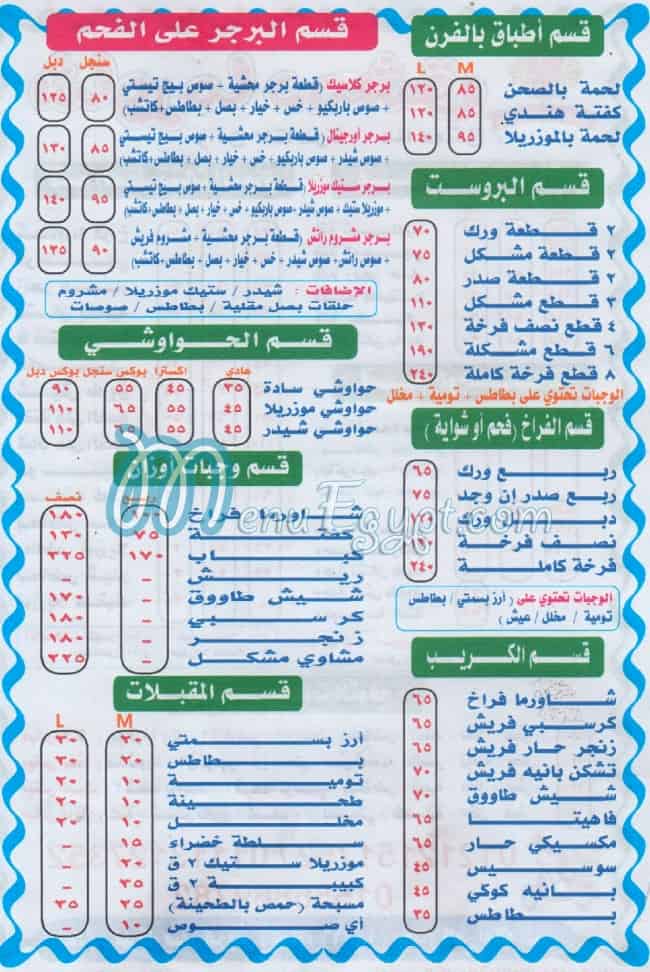 قسم أطباق بالفرن
M L
لحمة بالصحن ٨٥ ١٢٠
كفتة هندي ٨٥ ١٢٠
لحمة بالموزريلا ٩٥ ١٤٠
قسم البروست
٢ قطعة ورك ٧٠
٢ قطعة مشكل ٧٥
٢ قطعة صدر ٨٠
٣ قطع مشكل ١١٠
٤ قطع نصف فرخة ١٣٠
٦ قطع مشكلة ١٩٠
٨ قطع فرخة كاملة ٢٤٠
الوجبات تحتوي على بطاطس + تومية + مخلل
قسم الفراخ (فحم أو شواية)
ربع ورك ٦٥
ربع صدر إن وجد ٧٥
دبل إن ورك
نصف فرخة
فرخة كاملة ٢٤٠
الوجبات تحتوي على (أرز بسمتي / بطاطس
تومية / مخلل / عيش)
قسم الكريب
شاورما فراخ ٦٥
كرسبي فريش ٦٥
زنجر حار فريش ٦٥
تشكن بانيه فريش ٧٠
شيش طاووق ٧٠
فاهيتا ٦٥
مكسيكي حار ٦٥
سوسيس ٤٥
بانيه كوكي ٤٥
بطاطس ٣٥
قسم البرجر على الفحم
سنجل دبل
برجر كلاسيك (قطعة برجر محشية + صوص بيج تيستي
+ صوص باربكيو + خس + خيار + بصل + بطاطس+كاتشب) ٨٠ ١٢٥
برجر أورجينال (قطعة برجر محشية + صوص بيج تيستي
+ صوص شيدر + صوص باربكيو + خس + خيار + بصل + بطاطس+كاتشب) ٨٥ ١٣٠
برجر ستيك موزريلا (قطعة برجر محشية + صوص بيج تيستي
+ موزريلا ستيك + صوص شيدر + صوص باربكيو + خس + خيار + بصل + بطاطس+كاتشب) ٩٥ ١٤٠
برجر مشروم راتش (قطعة برجر محشية + مشروم فريش
+ صوص راتش+ صوص شيدر + خس + خيار + بصل + بطاطس+كاتشب) ٩٠ ١٣٥
الإضافات : شيدر / ستيك موزريلا / مشروم
حلقات بصل مقلية / بطاطس / صوصات
قسم الحواوشي
عادي إكسترا بوكس سنجل بوكس دبل
حواوشي سادة ٣٥ ٤٥ ٥٥ ٩٠
حواوشي موزريلا ٤٥ ٥٥ ٦٥ ١١٠
حواوشي شيدر ٤٥ ٥٥ ٦٥ ١١٠
قسم وجبات وزن
ربع نصف
شاورما فراخ ١٨٠
كفتة ٧٥ ١٣٠
كباب ١٧٠ ٣٢٥
ريش - -
شيش طاووق - ١٧٠
كرسبي - ١٨٠
زنجر - ١٨٠
مشاوي مشكل - ٢٢٥
قسم المقبلات
M L
أرز بسمتي ٢٠ ٣٠
بطاطس ٢٠ ٣٠
تومية ١٠ ٢٠
طحينة ١٠ ٢٠
مخلل ١٠ ٢٠
سلطة خضراء ١٥ -
موزريلا ستيك ٢ ق ٢٠ -
كبيبة ٢ ق ٣٥ -
مسبحة (حمص بالطحينة) ٢٥ ٣٥
أي صوص ١٠ -
MenuEgypt.com